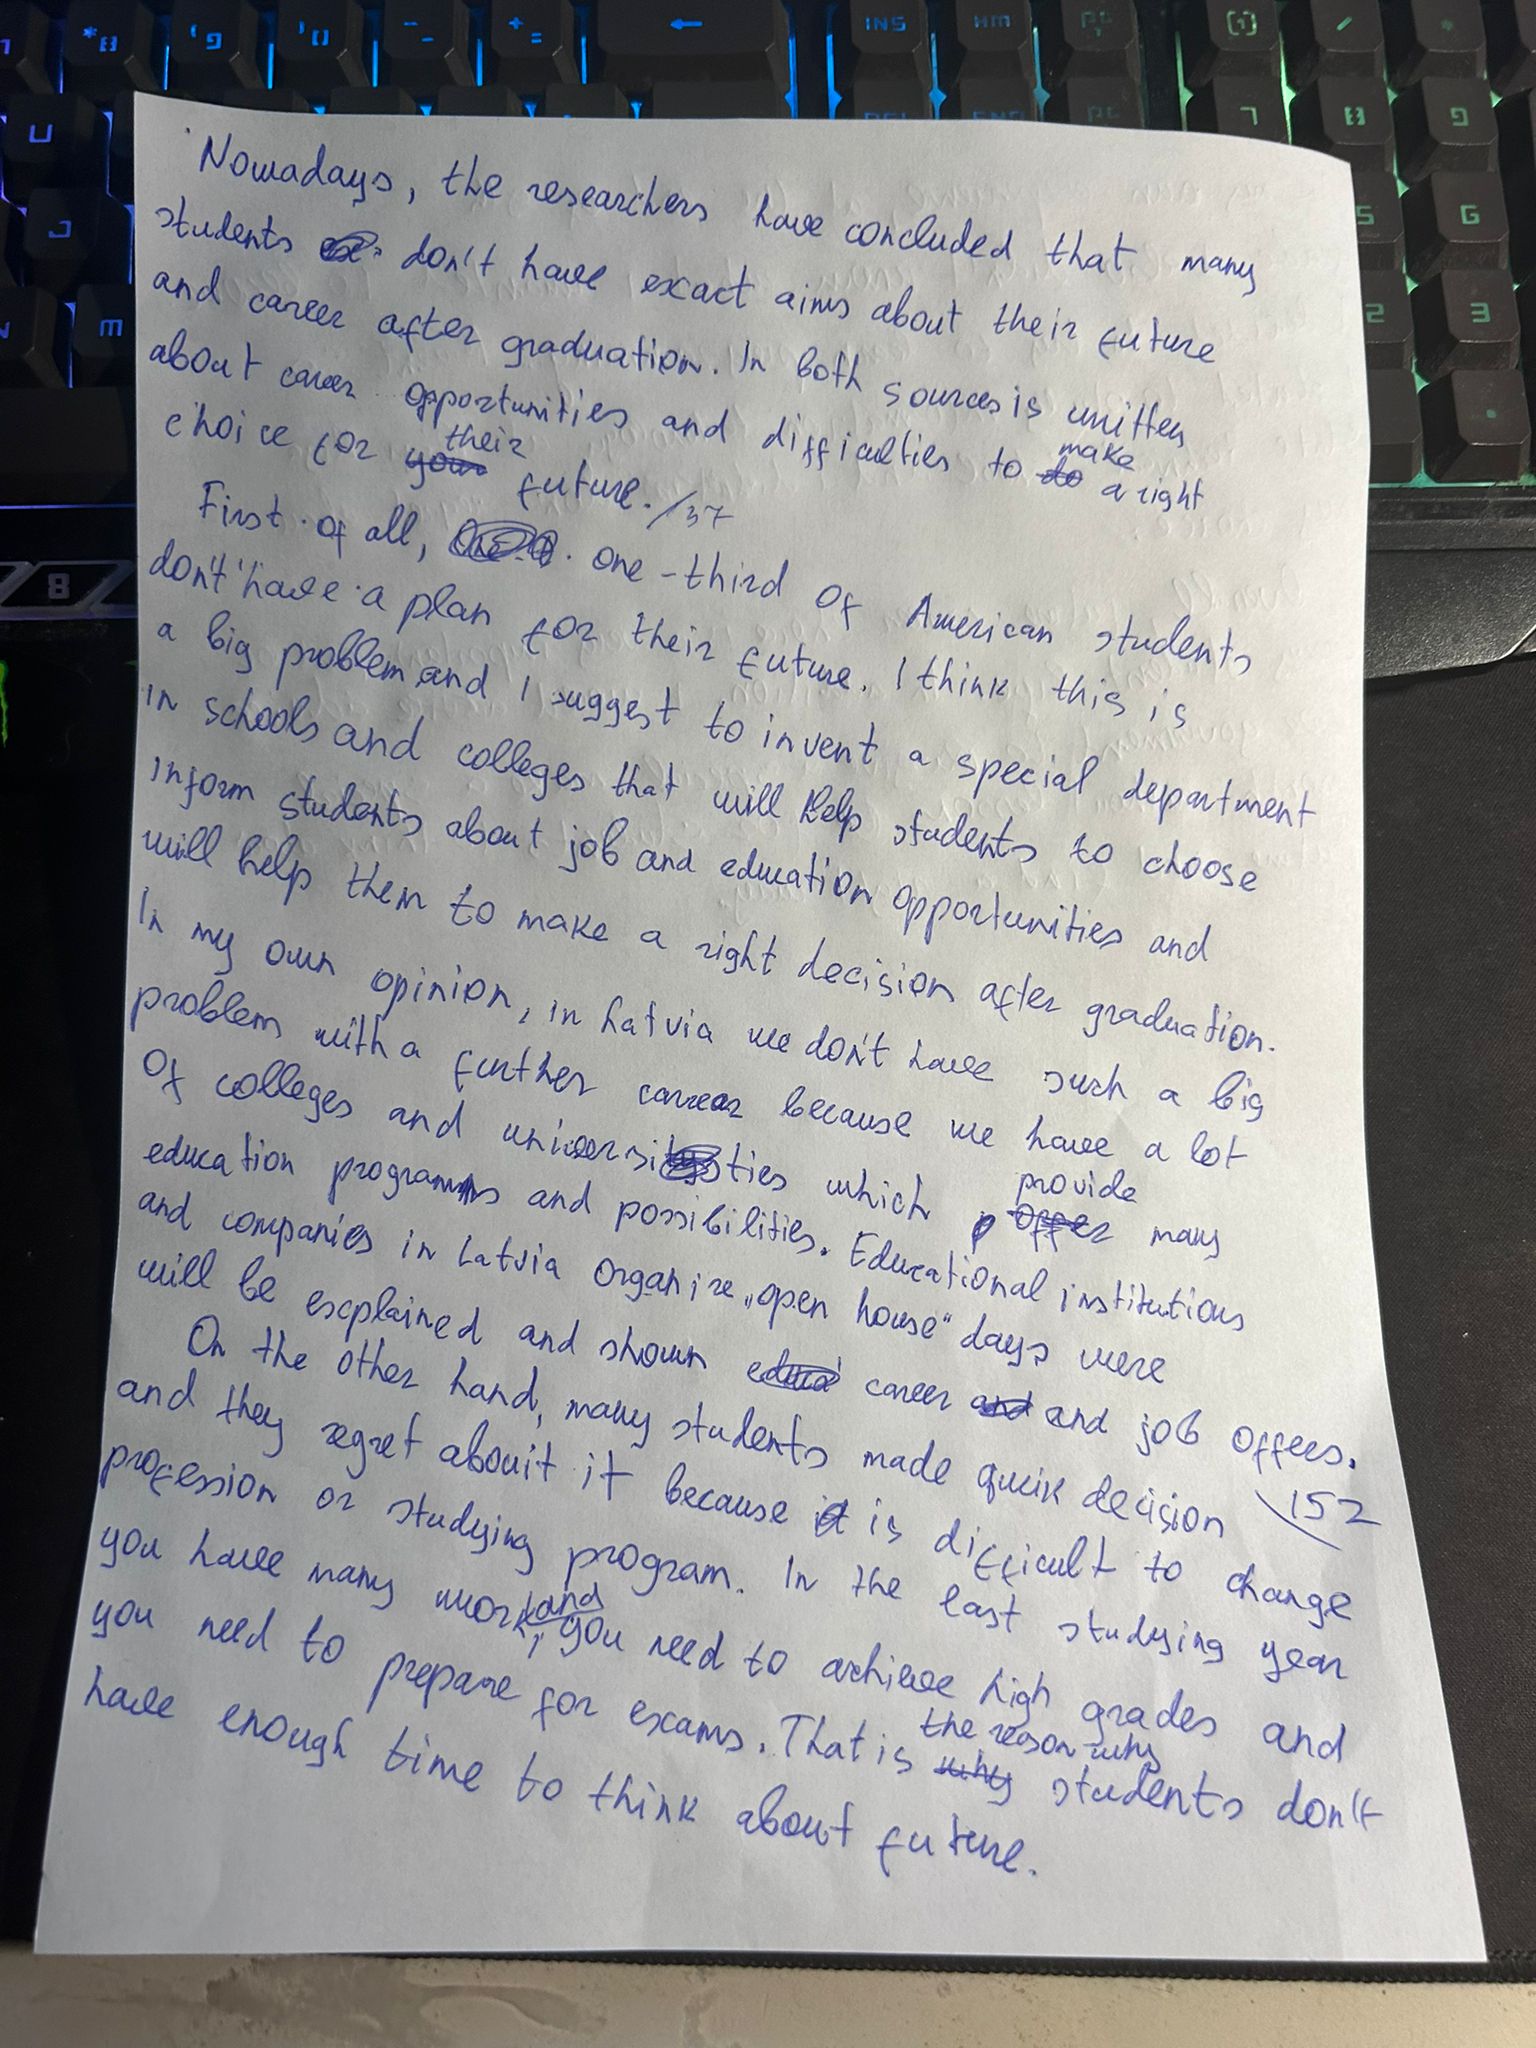 Nowadays, the researchers have concluded that many
students don't have exact aims about their future
and career after graduation. In both sources is written
about career opportunities and difficulties to make a right
choice for their future. /37
First of all, one-third of American students
don't have a plan for their future. I think this is
a big problem and I suggest to invent a special department
in schools and colleges that will help students to choose
inform students about job and education opportunities and
will help them to make a right decision after graduation.
In my own opinion, in Latvia we don't have such a big
problem with a further career because we have a lot
of colleges and universities which provide many
education programms and possibilities. Educational institutions
and companies in Latvia organize „open house" days were
will be explained and shown career and job offers.
\152
On the other hand, many students made quick decision
and they regret about it because it is difficult to change
profession or studying program. In the last studying year
you have many work, and you need to achieve high grades and
you need to prepare for exams. That is the reason why students don't
have enough time to think about future.
INS
HM
8